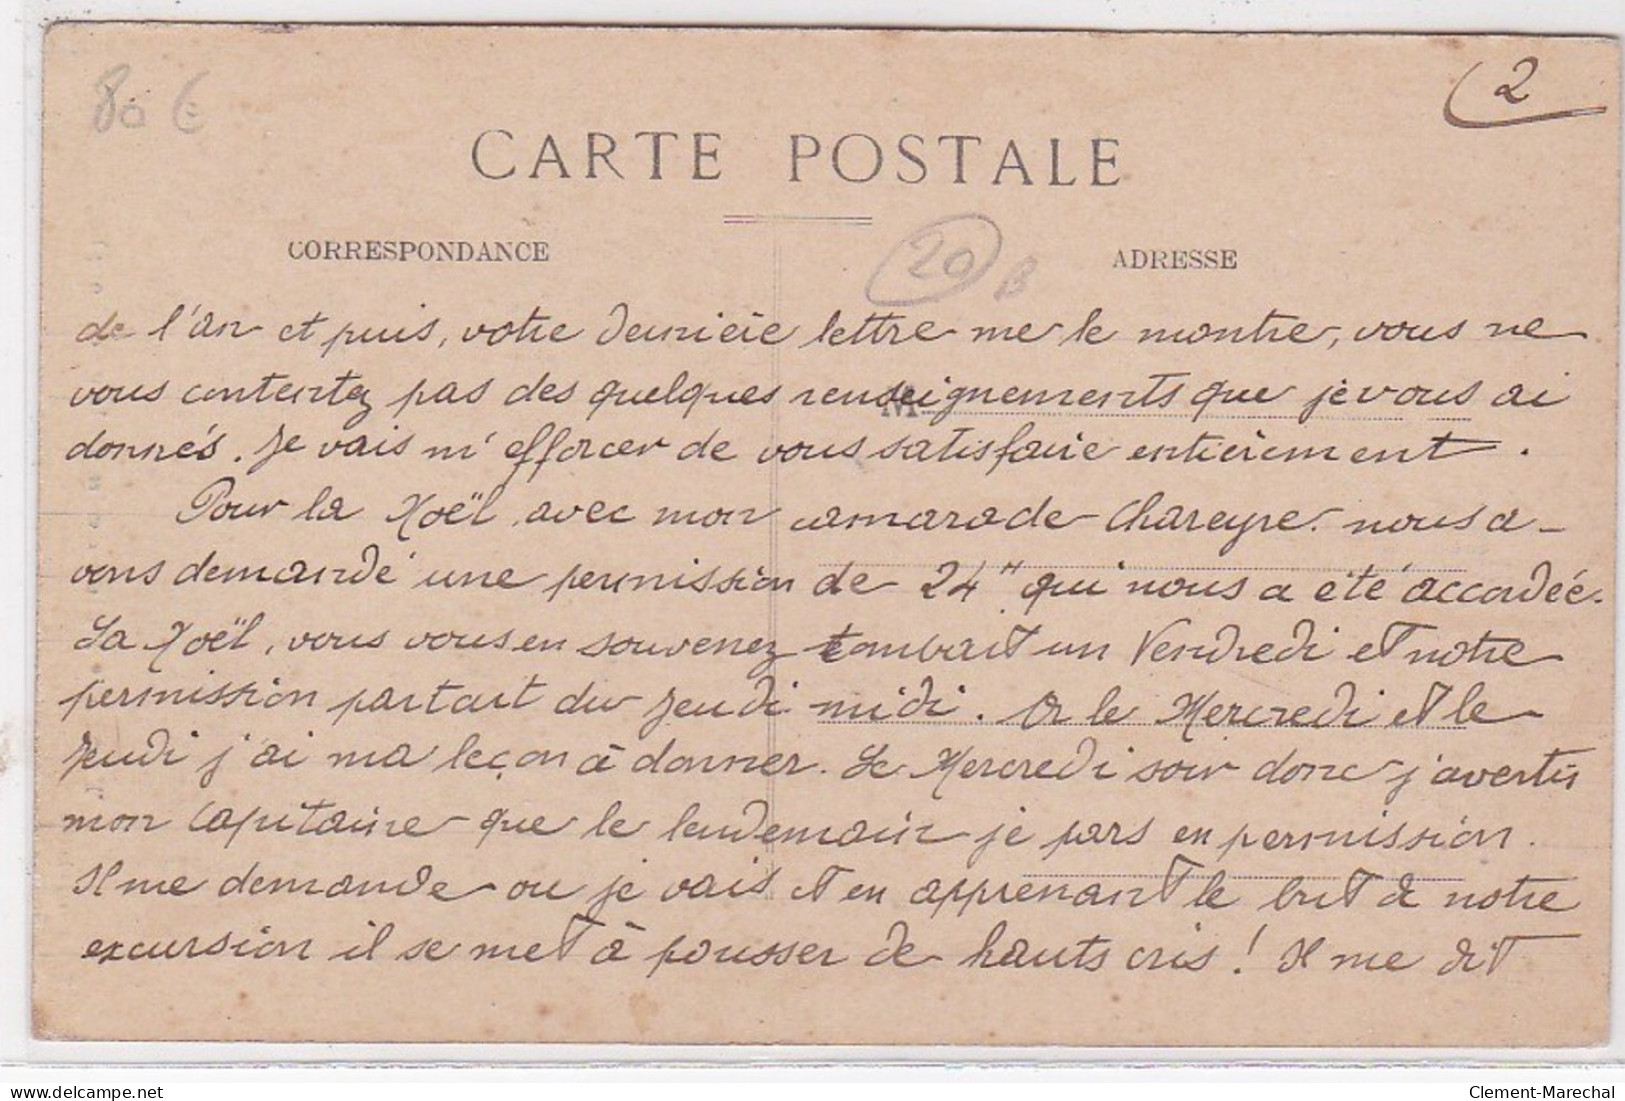 80 €
2
CARTE POSTALE
20
B
CORRESPONDANCE
ADRESSE
de l'an et puis, votre dernière lettre me le montre, vous ne
vous contentez pas des quelques renseignements que je vous ai
M
donnés. Je vais m'efforcer de vous satisfaire entièrement.
Pour la Noël avec mon camarade Chareyre nous a-
vons demandé une permission de 24H. qui nous a été accordée.
La Noël, vous vous en souvenez tombait un Vendredi et notre
permission partait du Jeudi midi. Or le Mercredi et le
Jeudi j'ai ma leçon à donner. Le Mercredi soir donc j'avertis
mon Capitaine que le lendemain je pars en permission.
Il me demande où je vais et en apprenant le but de notre
excursion il se met à pousser de hauts cris! Il me dit
Clement-Marechal
www.delcampe.net